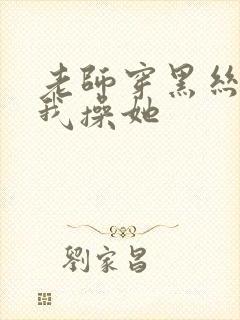 老師穿黑絲
我操她
劉家昌